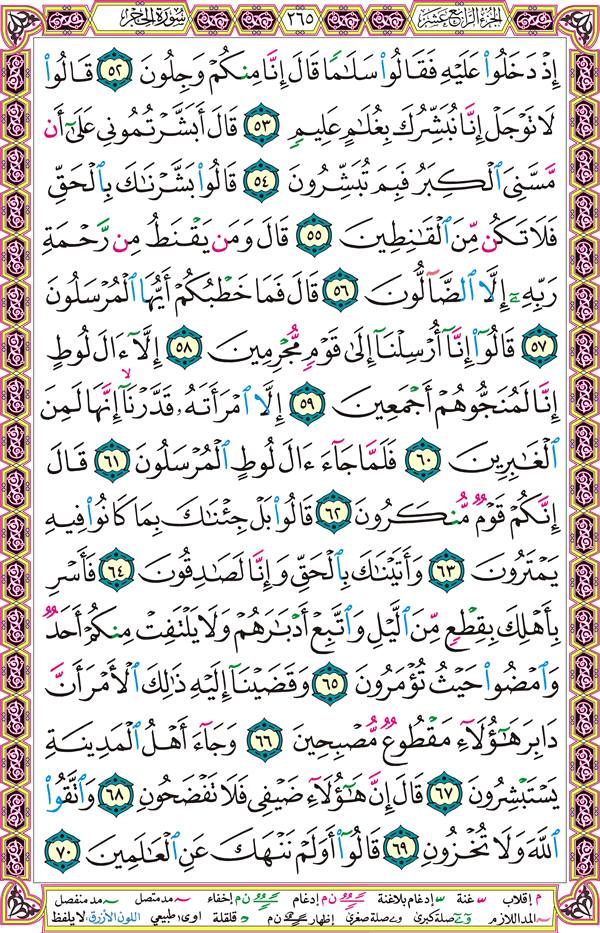 الجزء الرابع عشر ٢٦٥ سورة الحجر
إِذْ دَخَلُوا۟ عَلَيْهِ فَقَالُوا۟ سَلَٰمًا قَالَ إِنَّا مِنكُمْ وَجِلُونَ ٥٢ قَالُوا۟
لَا تَوْجَلْ إِنَّا نُبَشِّرُكَ بِغُلَٰمٍ عَلِيمٍ ٥٣ قَالَ أَبَشَّرْتُمُونِى عَلَىٰٓ أَن
مَّسَّنِىَ ٱلْكِبَرُ فَبِمَ تُبَشِّرُونَ ٥٤ قَالُوا۟ بَشَّرْنَٰكَ بِٱلْحَقِّ
فَلَا تَكُن مِّنَ ٱلْقَٰنِطِينَ ٥٥ قَالَ وَمَن يَقْنَطُ مِن رَّحْمَةِ
رَبِّهِۦٓ إِلَّا ٱلضَّآلُّونَ ٥٦ قَالَ فَمَا خَطْبُكُمْ أَيُّهَا ٱلْمُرْسَلُونَ
٥٧ قَالُوٓا۟ إِنَّآ أُرْسِلْنَآ إِلَىٰ قَوْمٍ مُّجْرِمِينَ ٥٨ إِلَّآ ءَالَ لُوطٍ
إِنَّا لَمُنَجُّوهُمْ أَجْمَعِينَ ٥٩ إِلَّا ٱمْرَأَتَهُۥ قَدَّرْنَآ إِنَّهَا لَمِنَ
ٱلْغَٰبِرِينَ ٦٠ فَلَمَّا جَآءَ ءَالَ لُوطٍ ٱلْمُرْسَلُونَ ٦١ قَالَ
إِنَّكُمْ قَوْمٌ مُّنكَرُونَ ٦٢ قَالُوا۟ بَلْ جِئْنَٰكَ بِمَا كَانُوا۟ فِيهِ
يَمْتَرُونَ ٦٣ وَأَتَيْنَٰكَ بِٱلْحَقِّ وَإِنَّا لَصَٰدِقُونَ ٦٤ فَأَسْرِ
بِأَهْلِكَ بِقِطْعٍ مِّنَ ٱلَّيْلِ وَٱتَّبِعْ أَدْبَٰرَهُمْ وَلَا يَلْتَفِتْ مِنكُمْ أَحَدٌ
وَٱمْضُوا۟ حَيْثُ تُؤْمَرُونَ ٦٥ وَقَضَيْنَآ إِلَيْهِ ذَٰلِكَ ٱلْأَمْرَ أَنَّ
دَابِرَ هَٰٓؤُلَآءِ مَقْطُوعٌ مُّصْبِحِينَ ٦٦ وَجَآءَ أَهْلُ ٱلْمَدِينَةِ
يَسْتَبْشِرُونَ ٦٧ قَالَ إِنَّ هَٰٓؤُلَآءِ ضَيْفِى فَلَا تَفْضَحُونِ ٦٨ وَٱتَّقُوا۟
ٱللَّهَ وَلَا تُخْزُونِ ٦٩ قَالُوٓا۟ أَوَلَمْ نَنْهَكَ عَنِ ٱلْعَٰلَمِينَ ٧٠
م إقلاب غنة إدغام بلاغنة ن م إدغام ن م إخفاء مد متصل مد منفصل
المد اللازم صلة كبرى صلة صغرى إظهار ن م قلقلة اوى طبيعي اللون الأزرق لا يلفظ